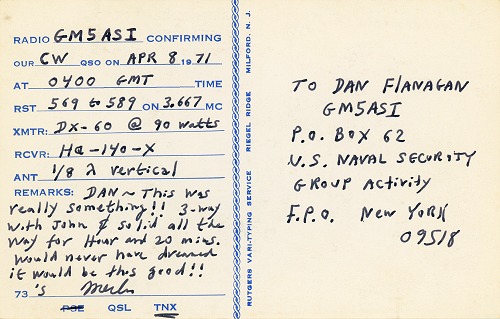 RADIO GM5ASI CONFIRMING
OUR CW QSO ON APR 8 1971
AT 0400 GMT TIME
RST 569 to 589 ON 3.667 MC
XMTR: DX-60 @ 90 watts
RCVR: HQ-140-X
ANT 1/8 λ vertical
REMARKS: DAN ~ This was
really something!! 3-way
with John & solid all the
way for Hour and 20 mins.
Would never have dreamed
it would be this good!!
73 's Merlin
PSE QSL TNX
RUTGERS VARI-TYPING SERVICE RIEGEL RIDGE MILFORD, N. J.
TO DAN FlANAGAN
GM5ASI
P.O. BOX 62
U.S. NAVAL SECURITY
GROUP Activity
F.P.O. NEW YORK
09518